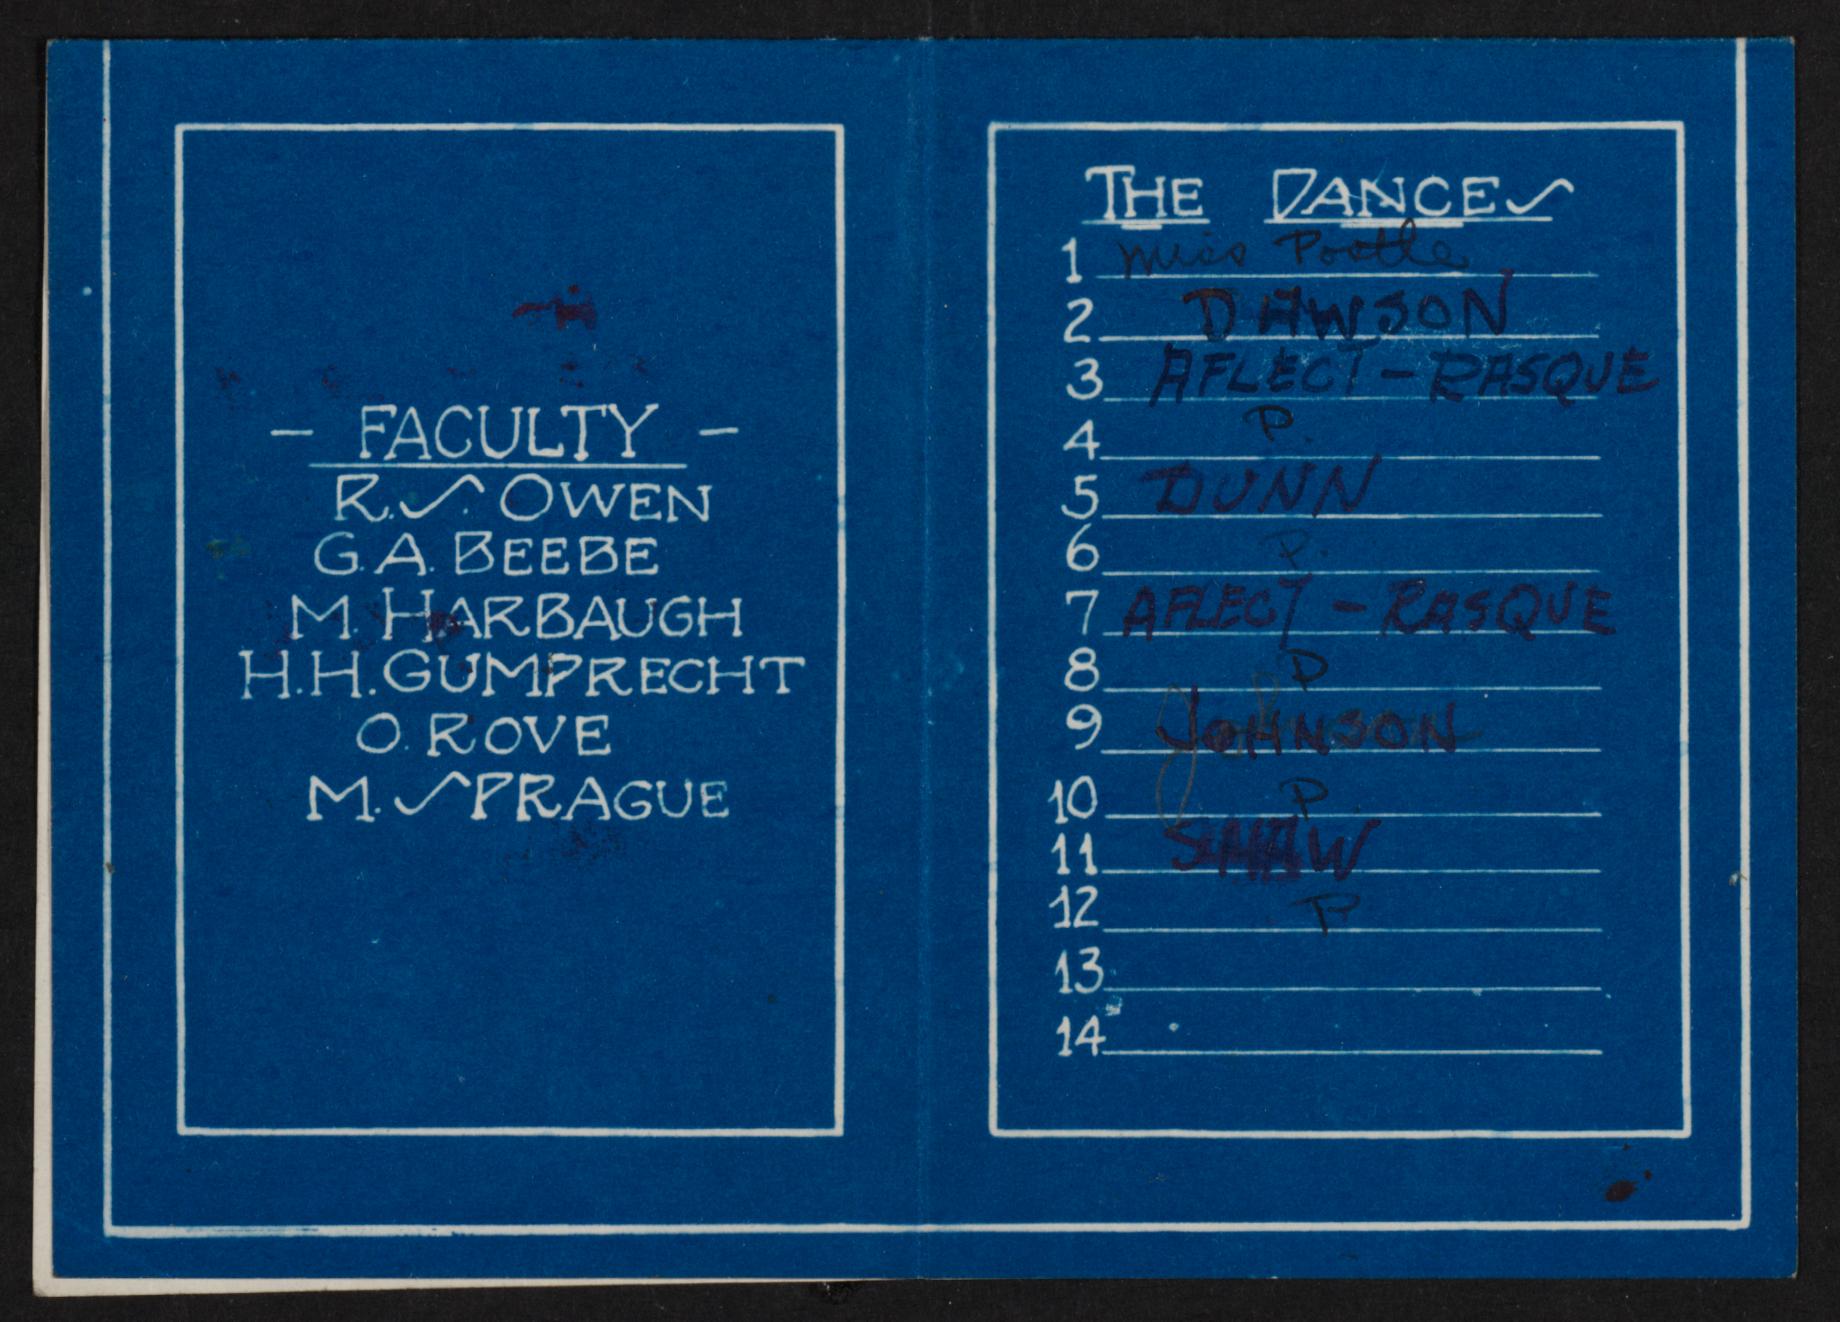 - FACULTY -
R.S. OWEN
G.A. BEEBE
M. HARBAUGH
H.H. GUMPRECHT
O. ROVE
M. SPRAGUE
THE DANCES
1 Miss Postle
2 DAWSON
3 AFLECT - RASQUE
4 P.
5 DUNN
6 P.
7 AFLECT - RASQUE
8 P
9 JOHNSON
10 P
11 SHAW
12 P
13
14